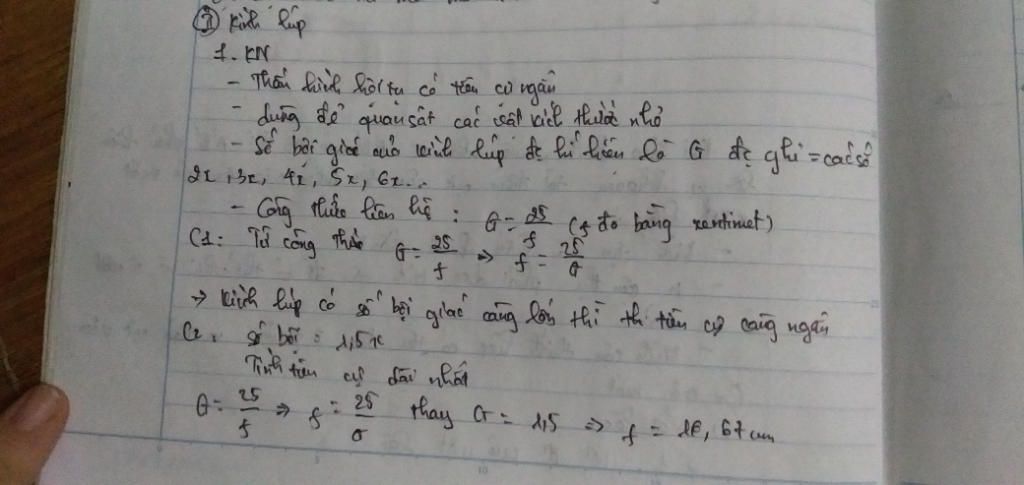 ① Kính lúp
1. KN
- Thấu kính hội tụ có tiêu cự ngắn
- dùng để quan sát các vật kích thước nhỏ
- Số bội giác của kính lúp đc kí hiệu là G đc ghi = các số
2x, 3x, 4x, 5x, 6x...
- Công thức liên hệ: G = 25/f (f đo bằng xentimet)
C1: Từ công thức G = 25/f => f = 25/G
→ Kính lúp có số bội giác càng lớn thì th tiêu cự càng ngắn
C2: số bội: 1,5x
Tính tiêu cự dài nhất
G = 25/f => f = 25/G thay G = 1,5 => f = 16,67 cm